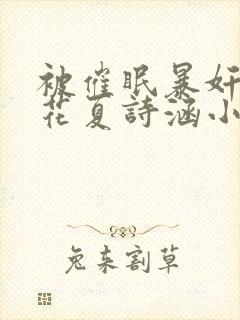 被催眠暴奸
花夏詩涵小
兔来割草